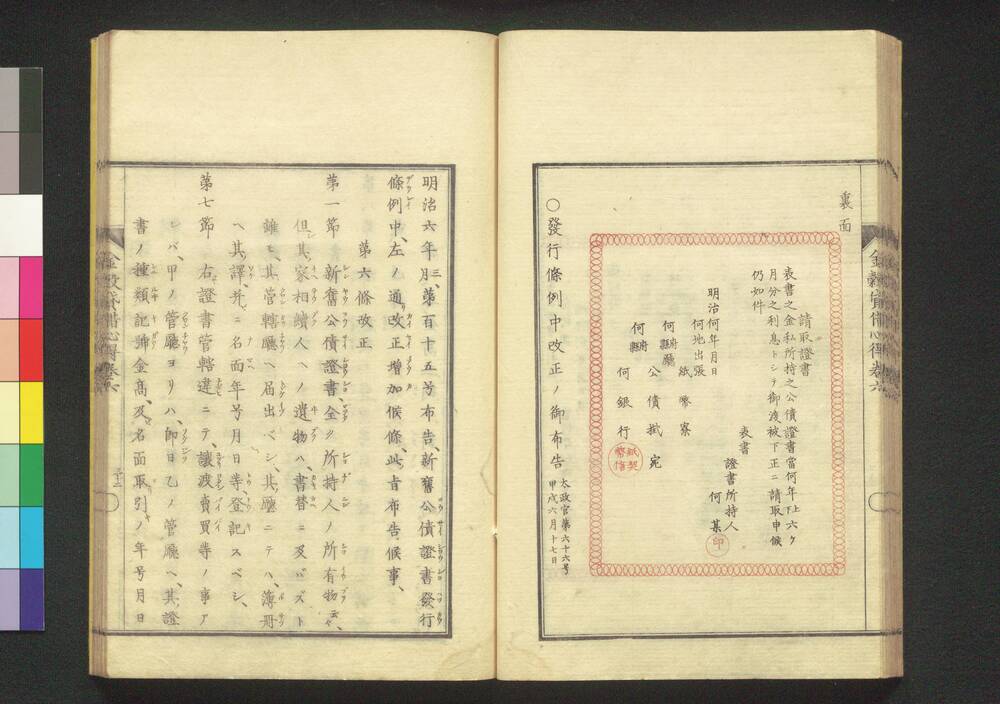 裏面
請取證書
表書之金私所持之公債證書當何年上下六ケ
月分之利息トシテ御渡被下正ニ請取申候
仍如件
表書
證書所持人
何某 印
明治何年月日
何地出張
紙幣寮
何府縣廳
公債掛宛
何府縣
何銀行
○發行條例中改正ノ御布告 太政官第六十六号 甲戌六月十七日
明治六年三月、第百十五号布告、新舊公債證書發行
條例中、左ノ通改正増加候條、此旨布告候事、
第六條改正
第一節 新舊公債證書ハ、全ク所持人ノ所有物ニ付、
但其家相續人ヘノ遺物ハ、書替ニ及バズト
雖モ、其管轄廳ヘ届出ベシ、其廳ニテハ、簿冊
ヘ其譯、并ニ名面年号月日等、登記スベシ、
第七節 右證書管轄違ニテ、讓渡賣買等ノ事ア
レバ、甲ノ管廳ヨリハ、即日乙ノ管廳ヘ、其證
書ノ種類記號金高、及名面取引ノ年号月日